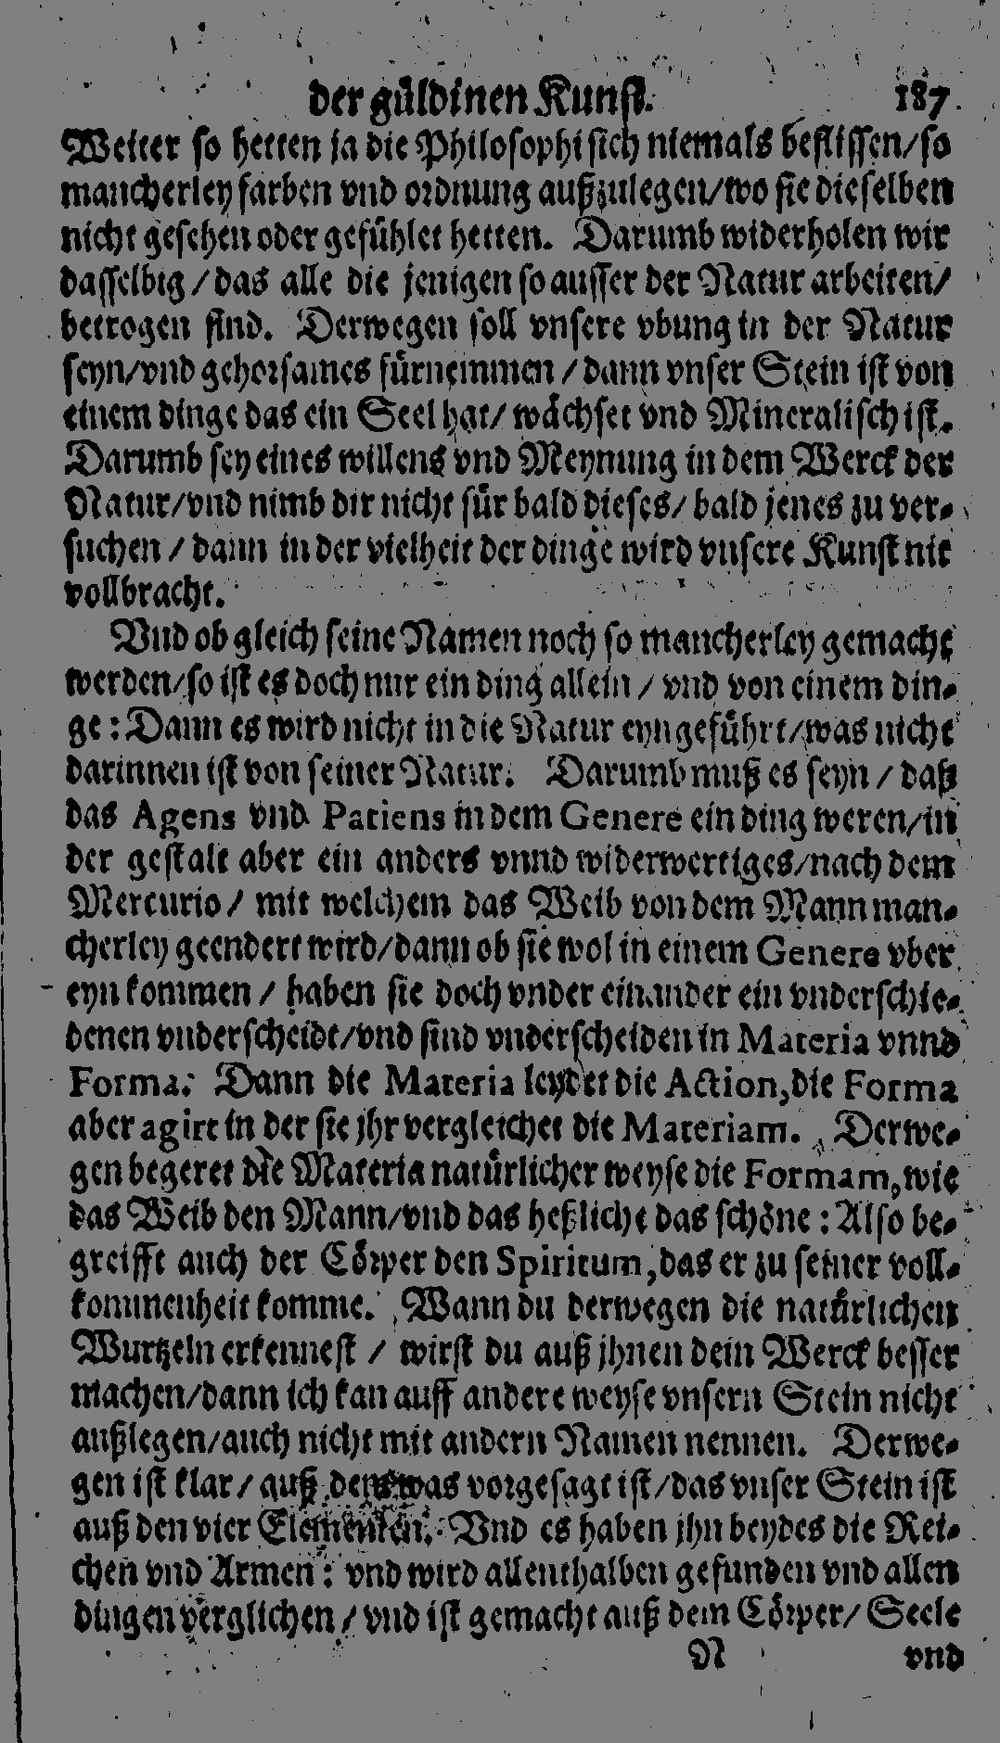 der güldinen Kunst. 187
Weiter so hetten ja die Philosophi sich niemals beflissen/so
mancherley farben vnd ordnung außzulegen/wo sie dieselben
nicht gesehen oder gefühlet hetten. Darumb widerholen wir
dasselbig/das alle die jenigen so ausser der Natur arbeiten/
betrogen sind. Derwegen soll vnsere vbung in der Natur
seyn/vnd gehorsames fürnemmen/dann vnser Stein ist von
einem dinge das ein Seel hat/wächset vnd Mineralisch ist.
Darumb sey eines willens vnd Meynung in dem Werck der
Natur/vnd nimb dir nicht für bald dieses/bald jenes zu ver-
suchen/dann in der vielheit der dinge wird vnsere Kunst nit
vollbracht.
Vnd ob gleich seine Namen noch so mancherley gemacht
werden/so ist es doch nur ein ding allein/vnd von einem din-
ge: Dann es wird nicht in die Natur eyngeführt/was nicht
darinnen ist von seiner Natur. Darumb muß es seyn/daß
das Agens vnd Patiens in dem Genere ein ding weren/in
der gestalt aber ein anders vnnd widerwertiges/nach dem
Mercurio/mit welchem das Weib von dem Mann man-
cherley geendert wird/dann ob sie wol in einem Genere vber
eyn kommen/haben sie doch vnder einander ein vnderschie-
denen vnderscheidt/vnd sind vnderscheiden in Materia vnnd
Forma. Dann die Materia leydet die Action, die Forma
aber agirt in der sie jhr vergleichet die Materiam. Derwe-
gen begeret die Materia natürlicher weyse die Formam, wie
das Weib den Mann/vnd das heßliche das schöne: Also be-
greifft auch der Cörper den Spiritum, das er zu seiner voll-
kommenheit komme. Wann du derwegen die natürlichen
Wurtzeln erkennest/wirst du auß jhnen dein Werck besser
machen/dann ich kan auff andere weyse vnsern Stein nicht
außlegen/auch nicht mit andern Namen nennen. Derwe-
gen ist klar/auß dem was vorgesagt ist/das vnser Stein ist
auß den vier Elementen. Vnd es haben jhn beydes die Rei-
chen vnd Armen: vnd wird allenthalben gefunden vnd allen
dingen verglichen/vnd ist gemacht auß dem Cörper/Seele
N vnd